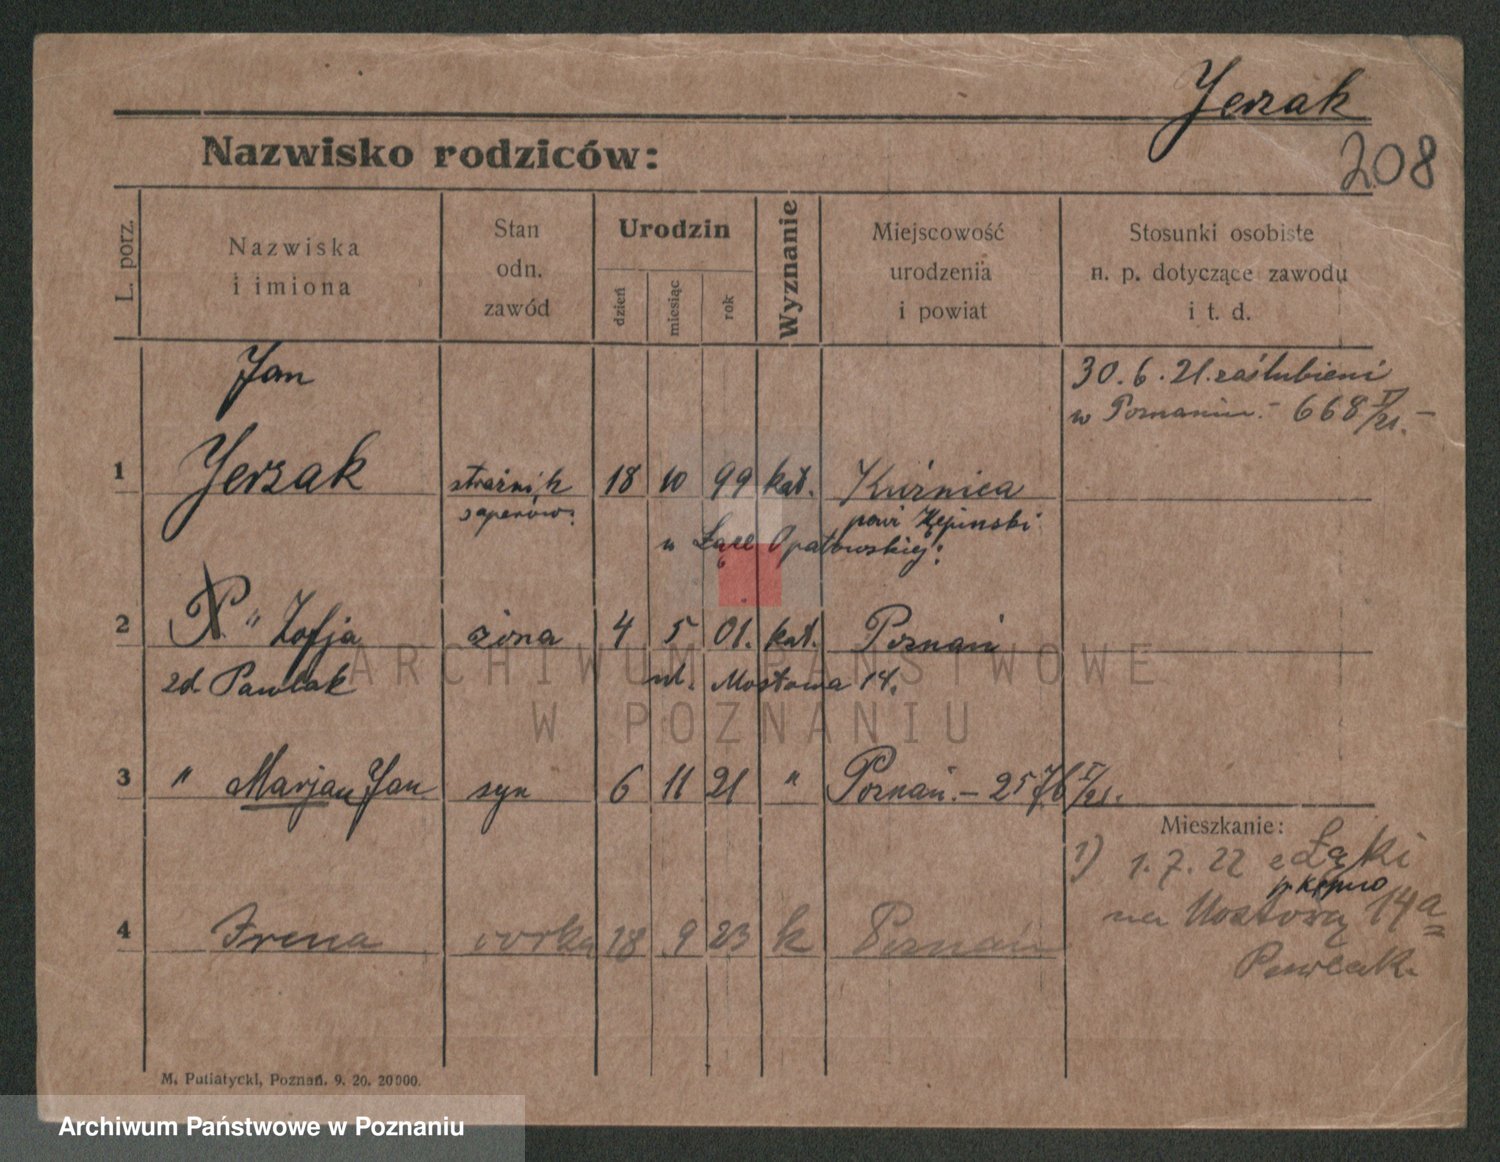 Jerzak
208
Nazwisko rodziców:
L. porz.
Nazwiska
i imiona
Stan
odn.
zawód
Urodzin
dzień
miesiąc
rok
Wyznanie
Miejscowość
urodzenia
i powiat
Stosunki osobiste
n. p. dotyczące zawodu
i t. d.
Jan
30.6.21. zaślubieni
w Poznaniu.- 668 I/21.-
1 Jerzak strażnik 18 10 99 kat. Kuźnica
saperów. pow. Kępiński
w Łące Opatowskiej.
2 " Zofja żona 4 5 01. kat. Poznań
zd Pawlak ul. Mostowa 14.
3 " Marjan Jan syn 6 11 21 " Poznań.- I/21.
Mieszkanie:
1) 1.7.22 z Łąki
p. Kępno
4 Irena córka 18 9 23 k Poznań
na Mostową 14a
Pawlak.
M. Putiatycki, Poznań. 9. 20. 20000.
ARCHIWUM PAŃSTWOWE
W POZNANIU
Archiwum Państwowe w Poznaniu